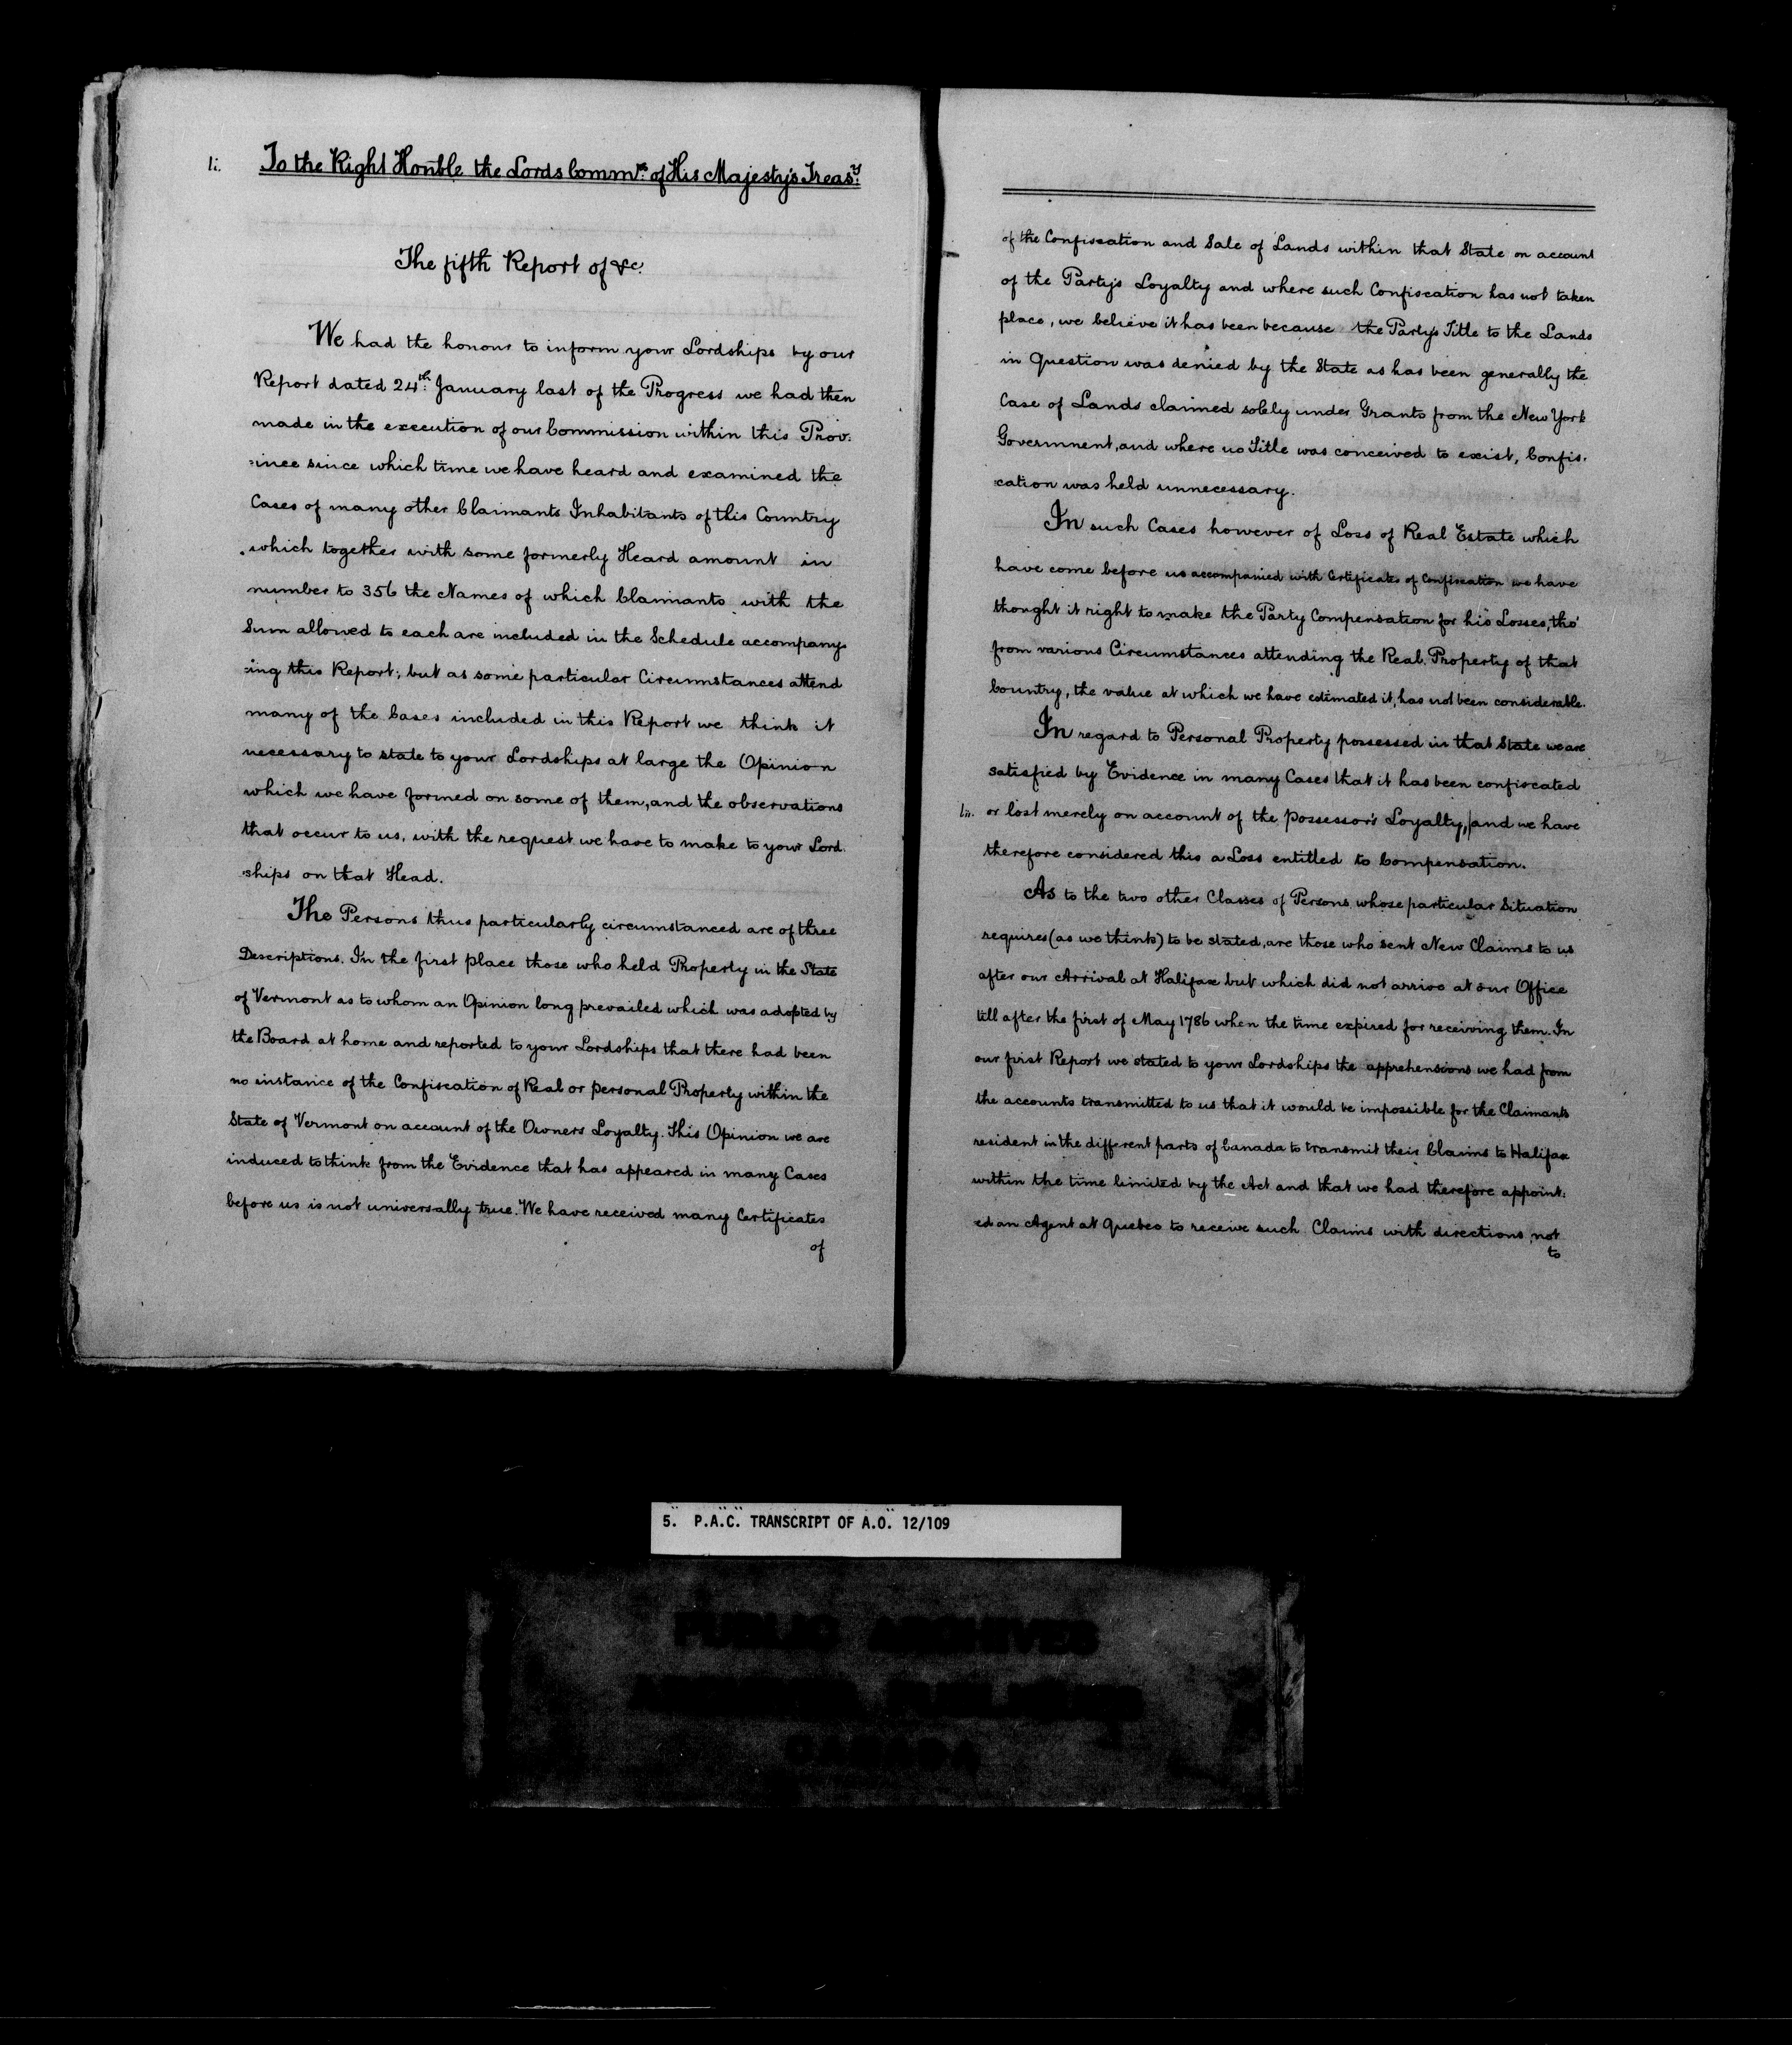 li.
To the Right Honble the Lords Commrs. of His Majesty's Treasy.
The fifth Report of &c.
We had the honour to inform your Lordships by our
Report dated 24th. January last of the Progress we had then
made in the execution of our Commission within this Prov:
:ince since which time we have heard and examined the
Cases of many other Claimants Inhabitants of this Country
which together with some formerly Heard amount in
number to 356 the Names of which Claimants with the
Sum allowed to each are included in the Schedule accompany:
:ing this Report; but as some particular Circumstances attend
many of the Cases included in this Report we think it
necessary to state to your Lordships at large the Opinion
which we have formed on some of them, and the observations
that occur to us, with the request we have to make to your Lord:
:ships on that Head.
The Persons thus particularly circumstanced are of three
Descriptions. In the first place those who held Property in the State
of Vermont as to whom an Opinion long prevailed which was adopted by
the Board at home and reported to your Lordships that there had been
no instance of the Confiscation of Real or personal Property within the
State of Vermont on account of the Owners Loyalty. This Opinion we are
induced to think from the Evidence that has appeared in many Cases
before us is not universally true. We have received many Certificates
of
of the Confiscation and Sale of Lands within that State on account
of the Party's Loyalty and where such Confiscation has not taken
place, we believe it has been because the Party's Title to the Lands
in Question was denied by the State as has been generally the
Case of Lands claimed solely under Grants from the New York
Government, and where no Title was conceived to exist, Confis:
:cation was held unnecessary.
In such Cases however of Loss of Real Estate which
have come before us accompanied with Certificates of Confiscation we have
thought it right to make the Party Compensation for his Losses, tho'
from various Circumstances attending the Real Property of that
Country, the value at which we have estimated it, has not been considerable.
In regard to Personal Property possessed in that State we are
satisfied by Evidence in many Cases that it has been confiscated
lii. or lost merely on account of the possessor's Loyalty,|and we have
therefore considered this a Loss entitled to Compensation.
As to the two other Classes of Persons whose particular Situation
requires (as we think) to be stated, are those who sent New Claims to us
after our Arrival at Halifax but which did not arrive at our Office
till after the first of May 1786 when the time expired for receiving them. In
our first Report we stated to your Lordships the apprehensions we had from
the accounts transmitted to us that it would be impossible for the Claimants
resident in the different parts of Canada to transmit their Claims to Halifax
within the time limited by the Act and that we had therefore appoint:
ed an Agent at Quebec to receive such Claims with directions not
to
5. P.A.C. TRANSCRIPT OF A.O. 12/109
PUBLIC ARCHIVES
CANADA